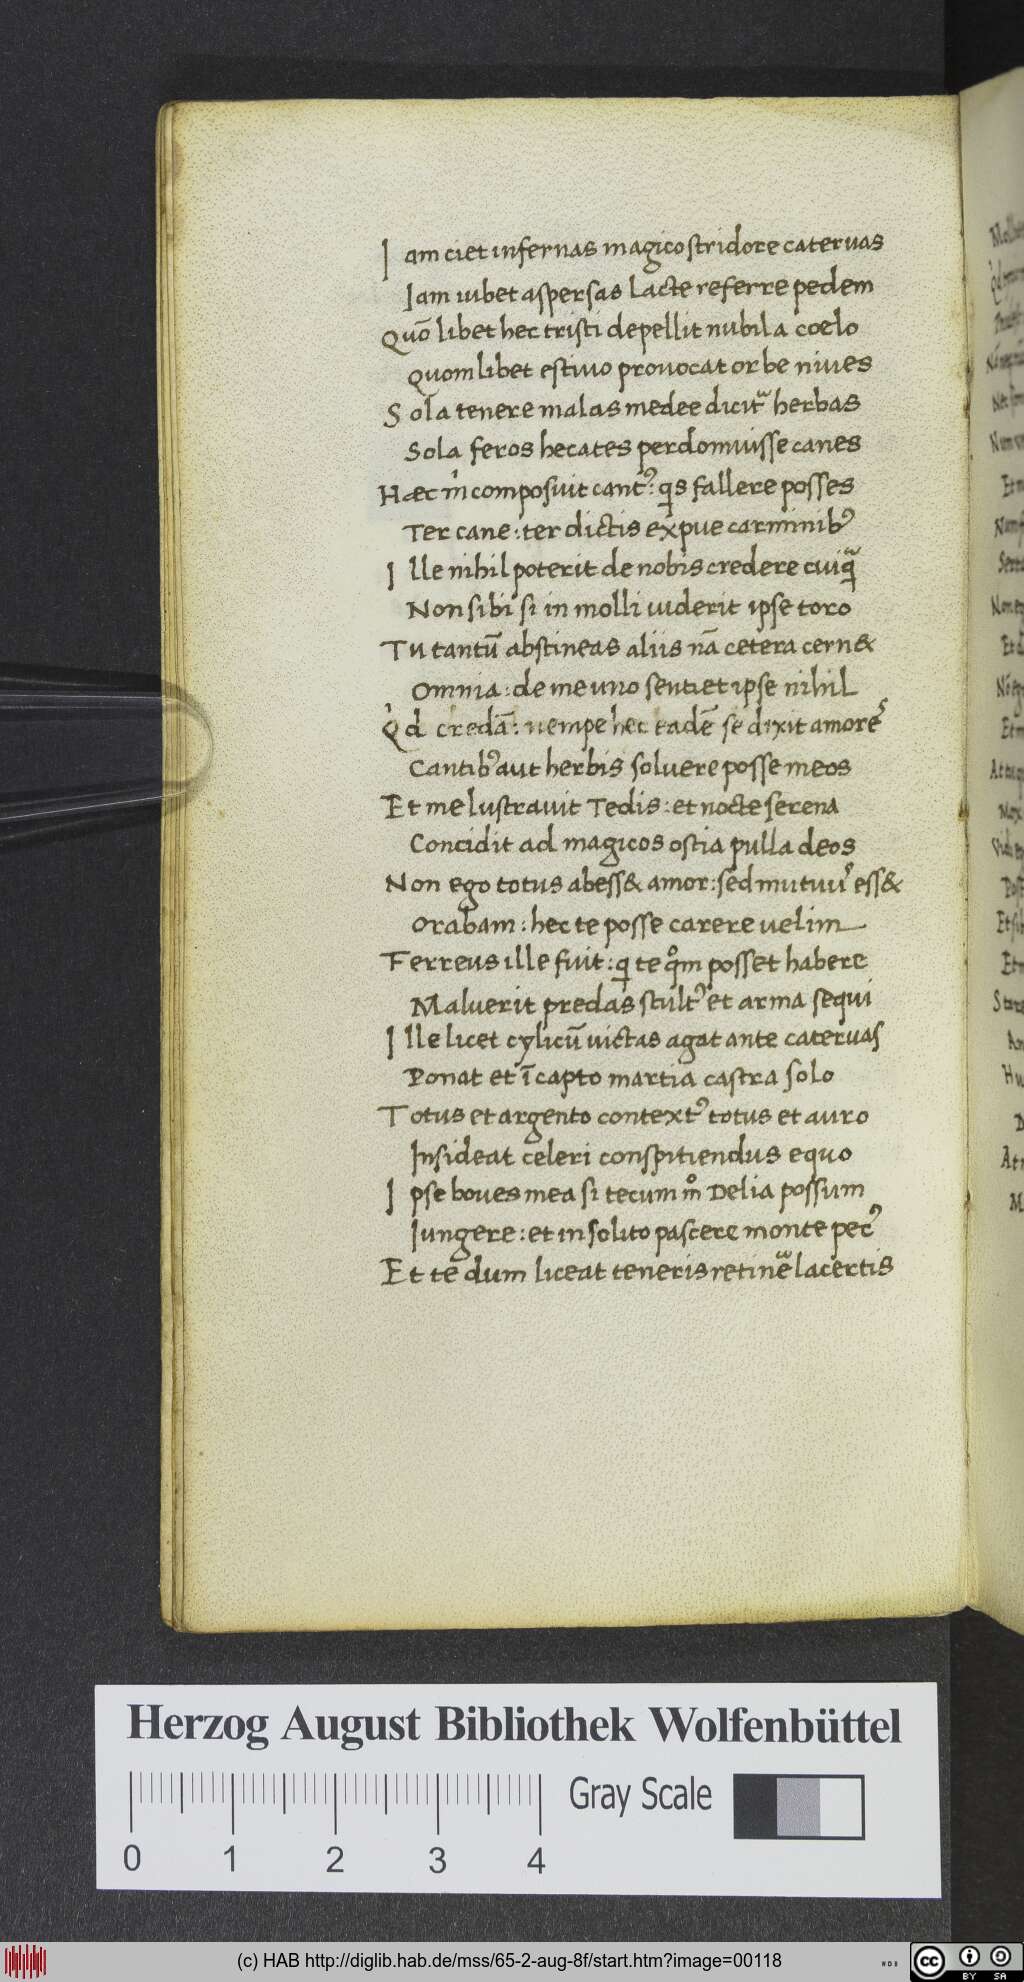 Iam ciet infernas magico stridore cateruas
Iam iubet aspersas lacte referre pedem
Quō libet hec tristi depellit nubila coelo
Quom libet estiuo prouocat orbe niues
Sola tenere malas medee dicitᷓ herbas
Sola feros hecates perdomuisse canes
Hæc m̍ composuit cant᾽: qs fallere posses
Ter cane: ter dictis expue carminib᾽
Ille nihil poterit de nobis credere cuiqᷓ
Non sibi si in molli uiderit ipse toro
Tu tantū abstineas aliis nā cetera cern&
Omnia: de me uno sentiet ipse nihil
Q̍d credā: nempe hec eadē se dixit amores
Cantib᾽ aut herbis soluere posse meos
Et me lustrauit Tedis: et nocte serena
Concidit ad magicos ostia pulla deos
Non ego totus abess& amor: sed mutuu᾽ ess&
Orabam: hec te posse carere uelim
Ferreus ille fuit: q te qͦm posset habere
Maluerit predas stult᾽ et arma sequi
Ille licet cylicū uictas agat ante cateruas
Ponat et ī capto martia castra solo
Totus et argento context᾽ totus et auro
Insideat celeri conspitiendus equo
Ipse boues mea si tecum mͦ Delia possum
Iungere: et in solito pascere monte pec᾽
Et te dum liceat teneris retineᷓ lacertis
Herzog August Bibliothek Wolfenbüttel
Gray Scale
0 1 2 3 4
(c) HAB http://diglib.hab.de/mss/65-2-aug-8f/start.htm?image=00118
cc BY SA